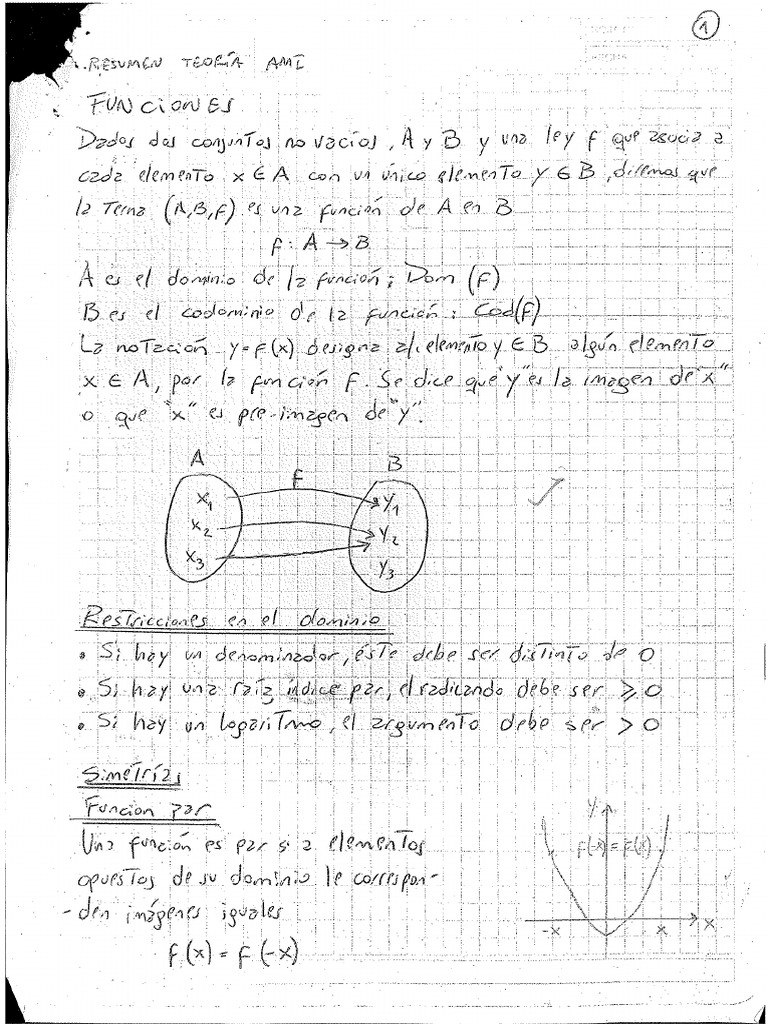 1
RESUMEN TEORÍA AMI
FUNCIONES
Dados dos conjuntos no vacíos, A y B y una ley f que asocia a
cada elemento x ∈ A con un único elemento y ∈ B, diremos que
la terna (A,B,f) es una función de A en B
f: A → B
A es el dominio de la función; Dom (f)
B es el codominio de la función; Cod(f)
La notación y=f(x) designa al elemento y ∈ B algún elemento
x ∈ A, por la función f. Se dice que "y" es la imagen de "x"
o que "x" es pre-imagen de "y".
A f B
x1 y1
x2 y2
x3 y3
Restricciones en el dominio
• Si hay un denominador, éste debe ser distinto de 0
• Si hay una raíz índice par, el radicando debe ser ≥ 0
• Si hay un logaritmo, el argumento debe ser > 0
Simetrías
Función par
Una función es par si a elementos
opuestos de su dominio le correspon-
-den imágenes iguales
f(x) = f(-x)
y
f(-x) = f(x)
-x x x